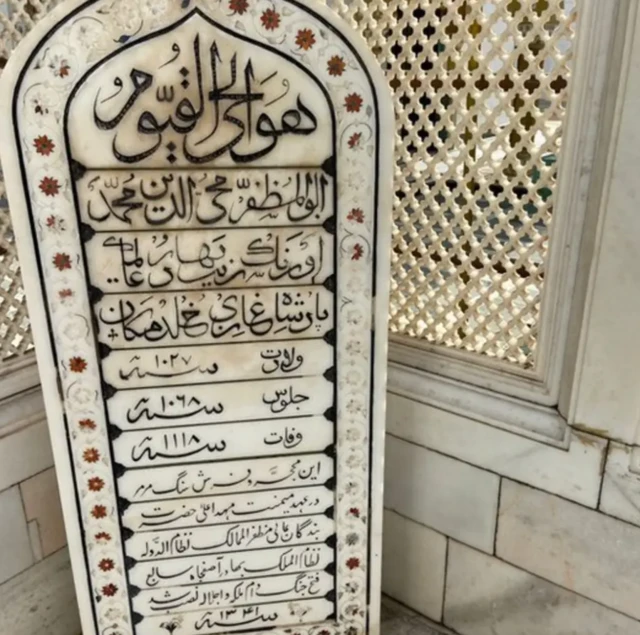 هو الحی القیوم
ابوالمظفر محی الدین محمد
اورنگ زیب بہادر عالمگیر
بادشاہ غازی خلد مکان
ولادت سنہ ۱۰۲۷
جلوس سنہ ۱۰۶۸
وفات سنہ ۱۱۱۸
این محجر و فرش سنگ مرمر
در عہد میمنت مہد اعلی حضرت
بندگان عالی مظفر الممالک نظام الدولہ
نظام الملک بہادر آصفجاہ سابع
فتح جنگ دام ملکہ و اجلالہ نصب شد
سنہ ۱۳۴۱